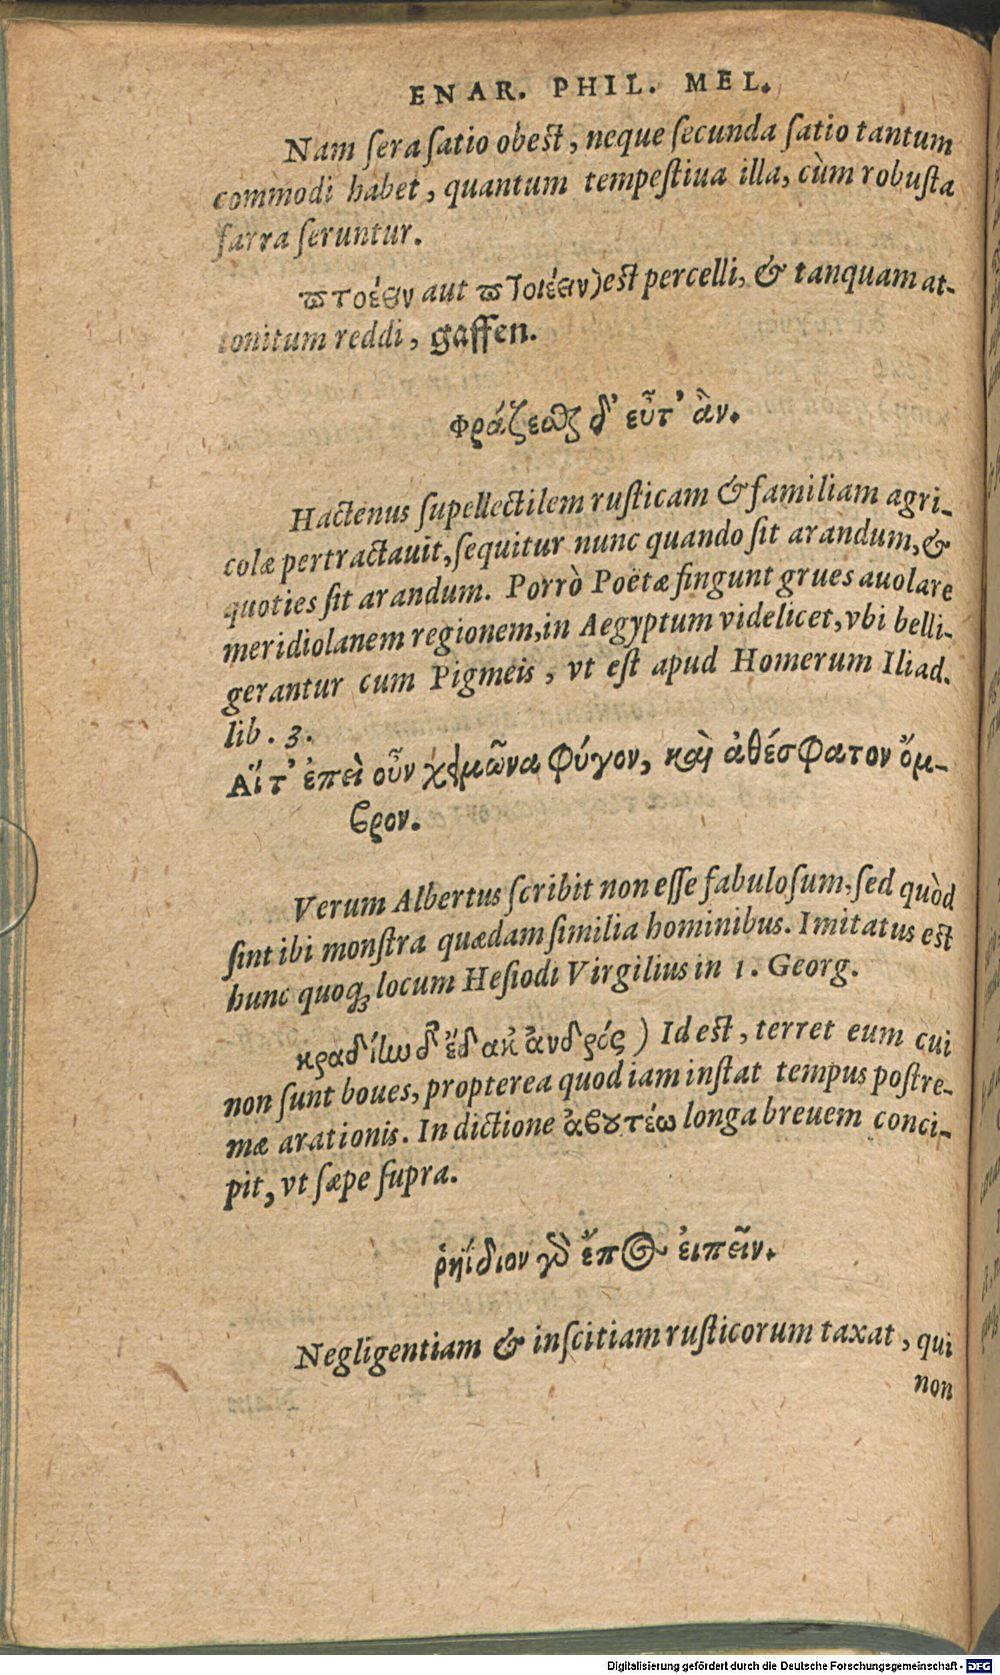 ENAR. PHIL. MEL.
Nam ſera ſatio obeſt, neque ſecunda ſatio tantum
commodi habet, quantum tempeſtiua illa, cùm robuſta
farra ſeruntur.
πτοέειν aut πτοιέειν) eſt percelli, & tanquam at-
tonitum reddi, gaffen.
φράζεσθαι δ' εὖτ' ἂν.
Hactenus ſupellectilem ruſticam & familiam agri-
colæ pertractauit, ſequitur nunc quando ſit arandum, &
quoties ſit arandum. Porrò Poëtæ fingunt grues auolare
meridiolanem regionem, in Aegyptum videlicet, vbi belli-
gerantur cum Pigmeis, vt eſt apud Homerum Iliad.
lib. 3.
Αἵτ' ἐπεὶ οὖν χειμῶνα φύγον, καὶ ἀθέσφατον ὄμ-
βρον.
Verum Albertus ſcribit non eſſe fabuloſum, ſed quòd
ſint ibi monſtra quædam ſimilia hominibus. Imitatus eſt
hunc quoq; locum Heſiodi Virgilius in 1. Georg.
κραδίην δ' ἔδακ' ἀνδρός) Id eſt, terret eum cui
non ſunt boues, propterea quod iam inſtat tempus poſtre-
mæ arationis. In dictione ἀβουτέω longa breuem conci-
pit, vt ſæpe ſupra.
ῥηΐδιον γὰρ ἔπος εἰπεῖν.
Negligentiam & inſcitiam ruſticorum taxat, qui
non
Digitalisierung gefördert durch die Deutsche Forschungsgemeinschaft - DFG